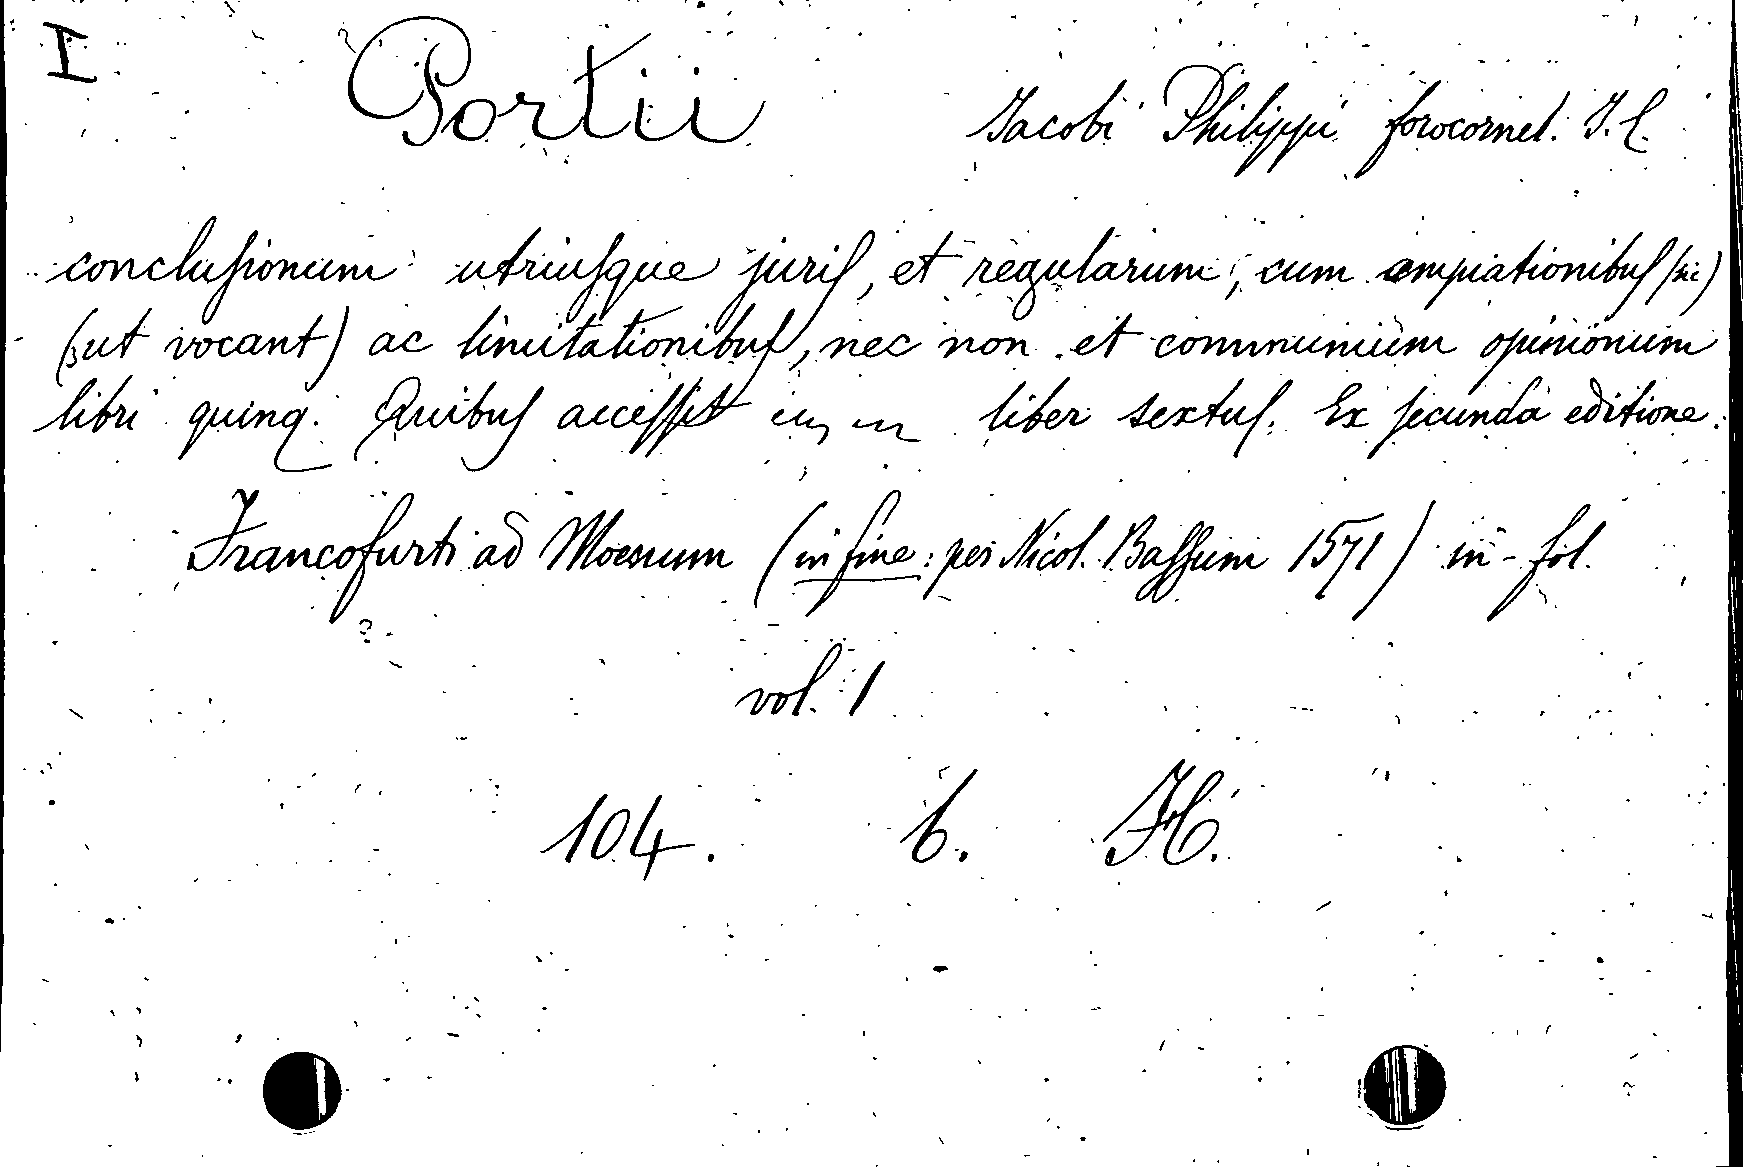 I
Portii Jacobi Philippi forocornel. J. C.
conclusionum utriusque juris, et regularum, cum ampiationibus (sic)
(ut vocant) ac limitationibus, nec non et communium opinionum
libri quinq. Quibus accessit liber sextus. Ex secunda editione.
Francofurti ad Moenum (in fine: per Nicol. Bassum 1571) in-fol.
vol. 1
104. 6. H.